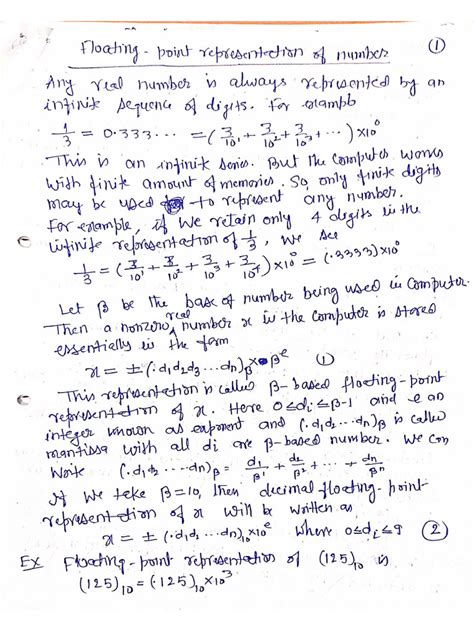 Floating-point representation of number ①
Any real number is always represented by an
infinite sequence of digits. For example
1/3 = 0.333··· = (3/10¹ + 3/10² + 3/10³ + ···) × 10⁰
This is an infinite series. But the computer works
with finite amount of memories. So only finite digits
may be used to represent any number.
For example, if we retain only 4 digits in the
infinite representation of 1/3, we see
1/3 = (3/10¹ + 3/10² + 3/10³ + 3/10⁴) × 10⁰ = (.3333) × 10⁰
Let β be the base of number being used in computer.
Then a nonzero real number x in the computer is stored
essentially in the form
x = ± (.d₁d₂d₃ ··· dn)β × βᵉ (1)
This representation is called β-based floating-point
representation of x. Here 0≤di≤β-1 and e an
integer known as exponent and (.d₁d₂ ··· dn)β is called
mantissa with all di are β-based number. We can
write (.d₁d₂ ··· dn)β = d₁/β¹ + d₂/β² + ··· + dn/βⁿ
If we take β=10, then decimal floating-point-
representation of x will be written as
x = ± (.d₁d₂ ··· dn)₁₀ × 10ᵉ where 0≤di≤9 (2)
Ex Floating-point representation of (125)₁₀ is
(125)₁₀ = (.125)₁₀ × 10³